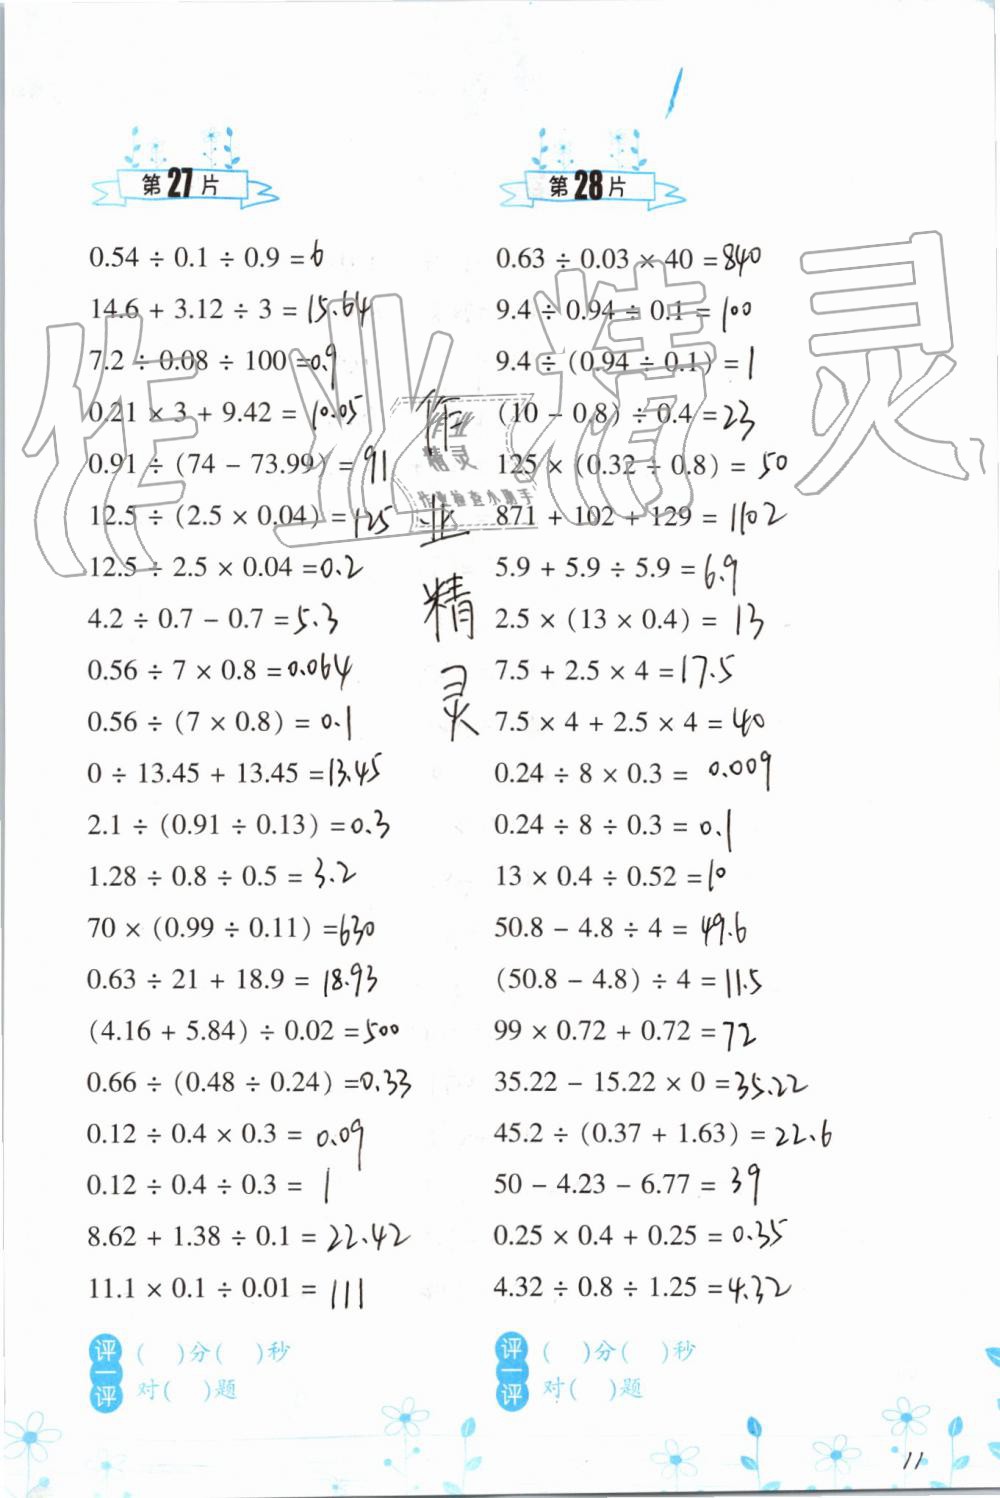 第27片
0.54 ÷ 0.1 ÷ 0.9 = 6
14.6 + 3.12 ÷ 3 = 15.64
7.2 ÷ 0.08 ÷ 100 = 0.9
0.21 × 3 + 9.42 = 10.05
0.91 ÷ (74 - 73.99) = 91
12.5 ÷ (2.5 × 0.04) = 125
12.5 ÷ 2.5 × 0.04 = 0.2
4.2 ÷ 0.7 - 0.7 = 5.3
0.56 ÷ 7 × 0.8 = 0.064
0.56 ÷ (7 × 0.8) = 0.1
0 ÷ 13.45 + 13.45 = 13.45
2.1 ÷ (0.91 ÷ 0.13) = 0.3
1.28 ÷ 0.8 ÷ 0.5 = 3.2
70 × (0.99 ÷ 0.11) = 630
0.63 ÷ 21 + 18.9 = 18.93
(4.16 + 5.84) ÷ 0.02 = 500
0.66 ÷ (0.48 ÷ 0.24) = 0.33
0.12 ÷ 0.4 × 0.3 = 0.09
0.12 ÷ 0.4 ÷ 0.3 = 1
8.62 + 1.38 ÷ 0.1 = 22.42
11.1 × 0.1 ÷ 0.01 = 111
评一评
( )分( )秒
对( )题
第28片
0.63 ÷ 0.03 × 40 = 840
9.4 ÷ 0.94 ÷ 0.1 = 100
9.4 ÷ (0.94 ÷ 0.1) = 1
(10 - 0.8) ÷ 0.4 = 23
125 × (0.32 ÷ 0.8) = 50
871 + 102 + 129 = 1102
5.9 + 5.9 ÷ 5.9 = 6.9
2.5 × (13 × 0.4) = 13
7.5 + 2.5 × 4 = 17.5
7.5 × 4 + 2.5 × 4 = 40
0.24 ÷ 8 × 0.3 = 0.009
0.24 ÷ 8 ÷ 0.3 = 0.1
13 × 0.4 ÷ 0.52 = 10
50.8 - 4.8 ÷ 4 = 49.6
(50.8 - 4.8) ÷ 4 = 11.5
99 × 0.72 + 0.72 = 72
35.22 - 15.22 × 0 = 35.22
45.2 ÷ (0.37 + 1.63) = 22.6
50 - 4.23 - 6.77 = 39
0.25 × 0.4 + 0.25 = 0.35
4.32 ÷ 0.8 ÷ 1.25 = 4.32
评一评
( )分( )秒
对( )题
作业精灵
作业精灵
作业
精灵
作业检查小助手
11